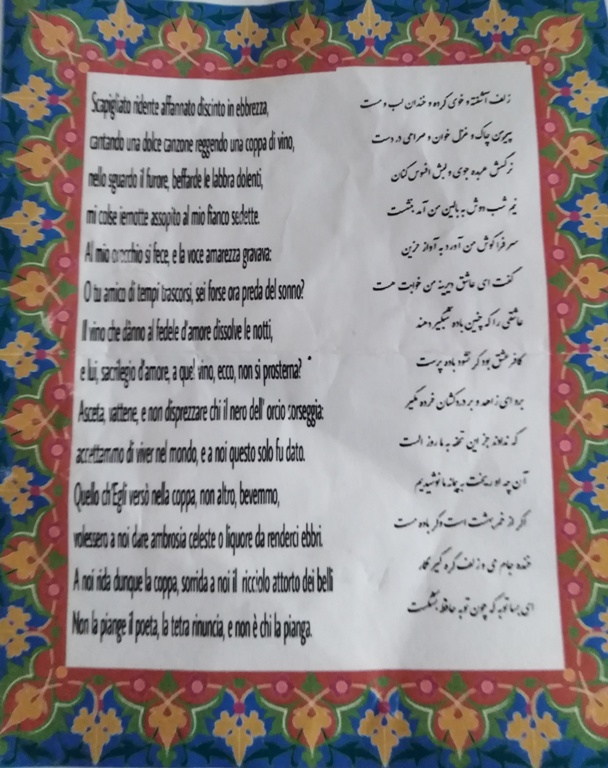 Scapigliato ridente affannato discinto in ebbrezza,
cantando una dolce canzone reggendo una coppa di vino,
nello sguardo il furore, beffarde le labbra dolenti,
mi colse iernotte assopito al mio fianco sedette.
Al mio orecchio si fece, e la voce amarezza gravava:
O tu amico di tempi trascorsi, sei forse ora preda del sonno?
Il vino che dànno al fedele d'amore dissolve le notti,
e lui, sacrilegio d'amore, a quel vino, ecco, non si prosterna?
Asceta, vattene, e non disprezzare chi il nero dell' orcio sorseggia:
accettammo di viver nel mondo, e a noi questo solo fu dato.
Quello ch'Egli versò nella coppa, non altro, bevemmo,
volessero a noi dare ambrosia celeste o liquore da renderci ebbri.
A noi rida dunque la coppa, sorrida a noi il ricciolo attorto dei belli
Non la piange il poeta, la tetra rinuncia, e non è chi la pianga.
زلف آشفته و خوی کرده و خندان لب و مست
پیرهن چاک و غزل خوان و صراحی در دست
نرگسش عربده جوی و لبش افسوس کنان
نیم شب دوش به بالین من آمد بنشست
سر فرا گوش من آورد به آواز حزین
گفت ای عاشق دیرینه من خوابت هست
عاشقی را که چنین باده شبگیر دهند
کافر عشق بود گر نشود باده پرست
برو ای زاهد و بر دردکشان خرده مگیر
که ندادند جز این تحفه به ما روز الست
آن چه او ریخت به پیمانه ما نوشیدیم
اگر از خمر بهشت است وگر باده مست
خنده جام می و زلف گره گیر نگار
ای بسا توبه که چون توبه حافظ بشکست